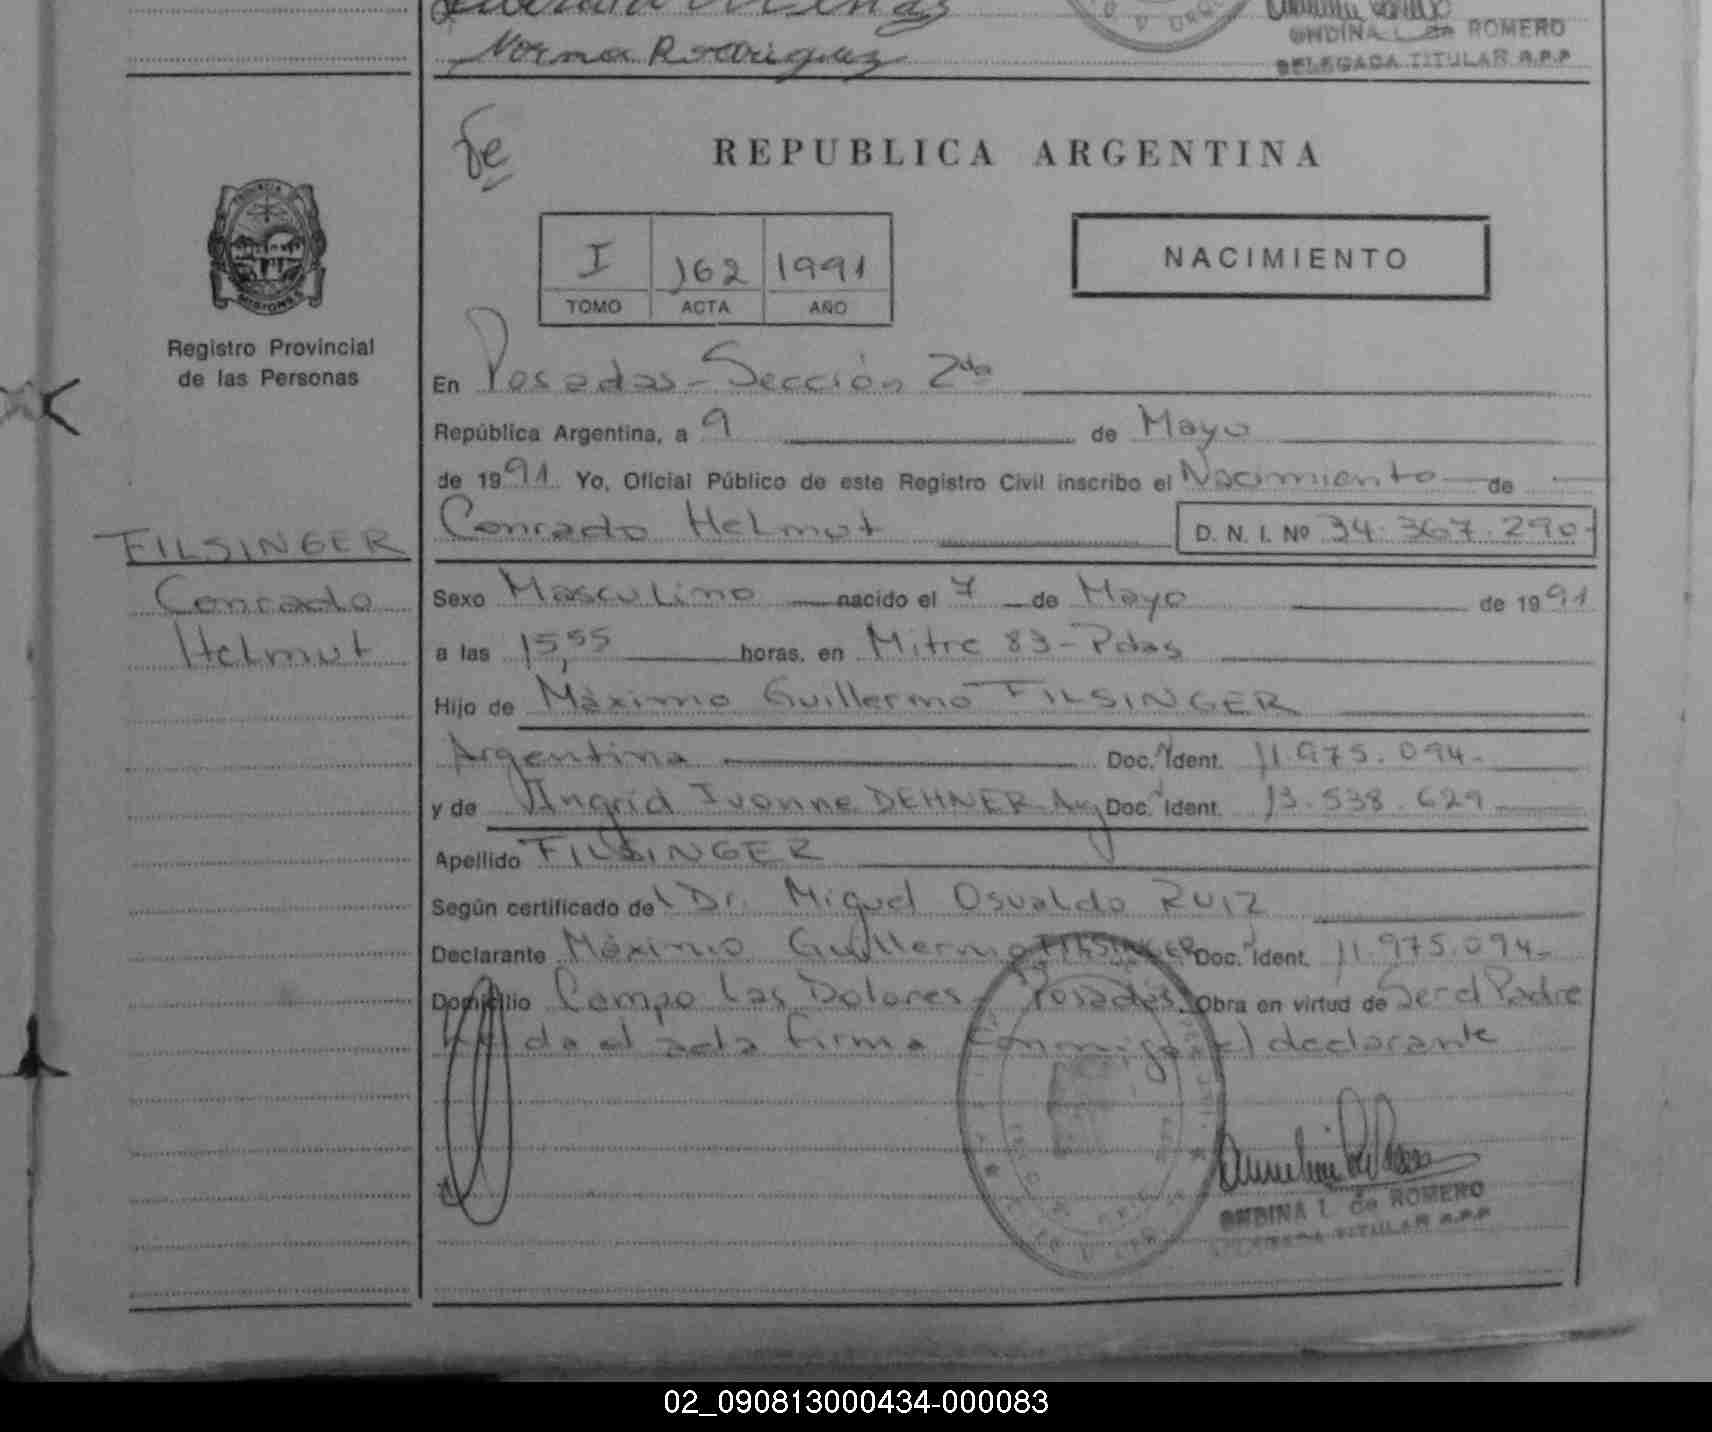 Norma Rodriguez
ONDINA I. de ROMERO
DELEGADA TITULAR R.P.P
REPUBLICA ARGENTINA
I 162 1991
TOMO ACTA AÑO
NACIMIENTO
PROVINCIA
MISIONES
Registro Provincial
de las Personas
En Posadas - Sección 2da
República Argentina, a 9 de Mayo
de 1991 Yo, Oficial Público de este Registro Civil inscribo el Nacimiento de
Conrado Helmut D. N. I. Nº 34.367.290-
FILSINGER
Conrado
Helmut
Sexo Masculino nacido el 7 de Mayo de 1991
a las 15,55 horas, en Mitre 83 - Pdas
Hijo de Máximo Guillermo FILSINGER
Argentina Doc. Ident. 11.975.094-
y de Ingrid Ivonne DEHNER Arg Doc. Ident. 13.538.629
Apellido FILSINGER
Según certificado del Dr. Miguel Osvaldo RUIZ
Declarante Máximo Guillermo FILSINGER Doc. Ident. 11.975.094-
Domicilio Campo Las Dolores - Posadas. Obra en virtud de Ser el Padre
Leída el acta firma conmigo el declarante
ONDINA I. de ROMERO
DELEGADA TITULAR R.P.P
02_090813000434-000083